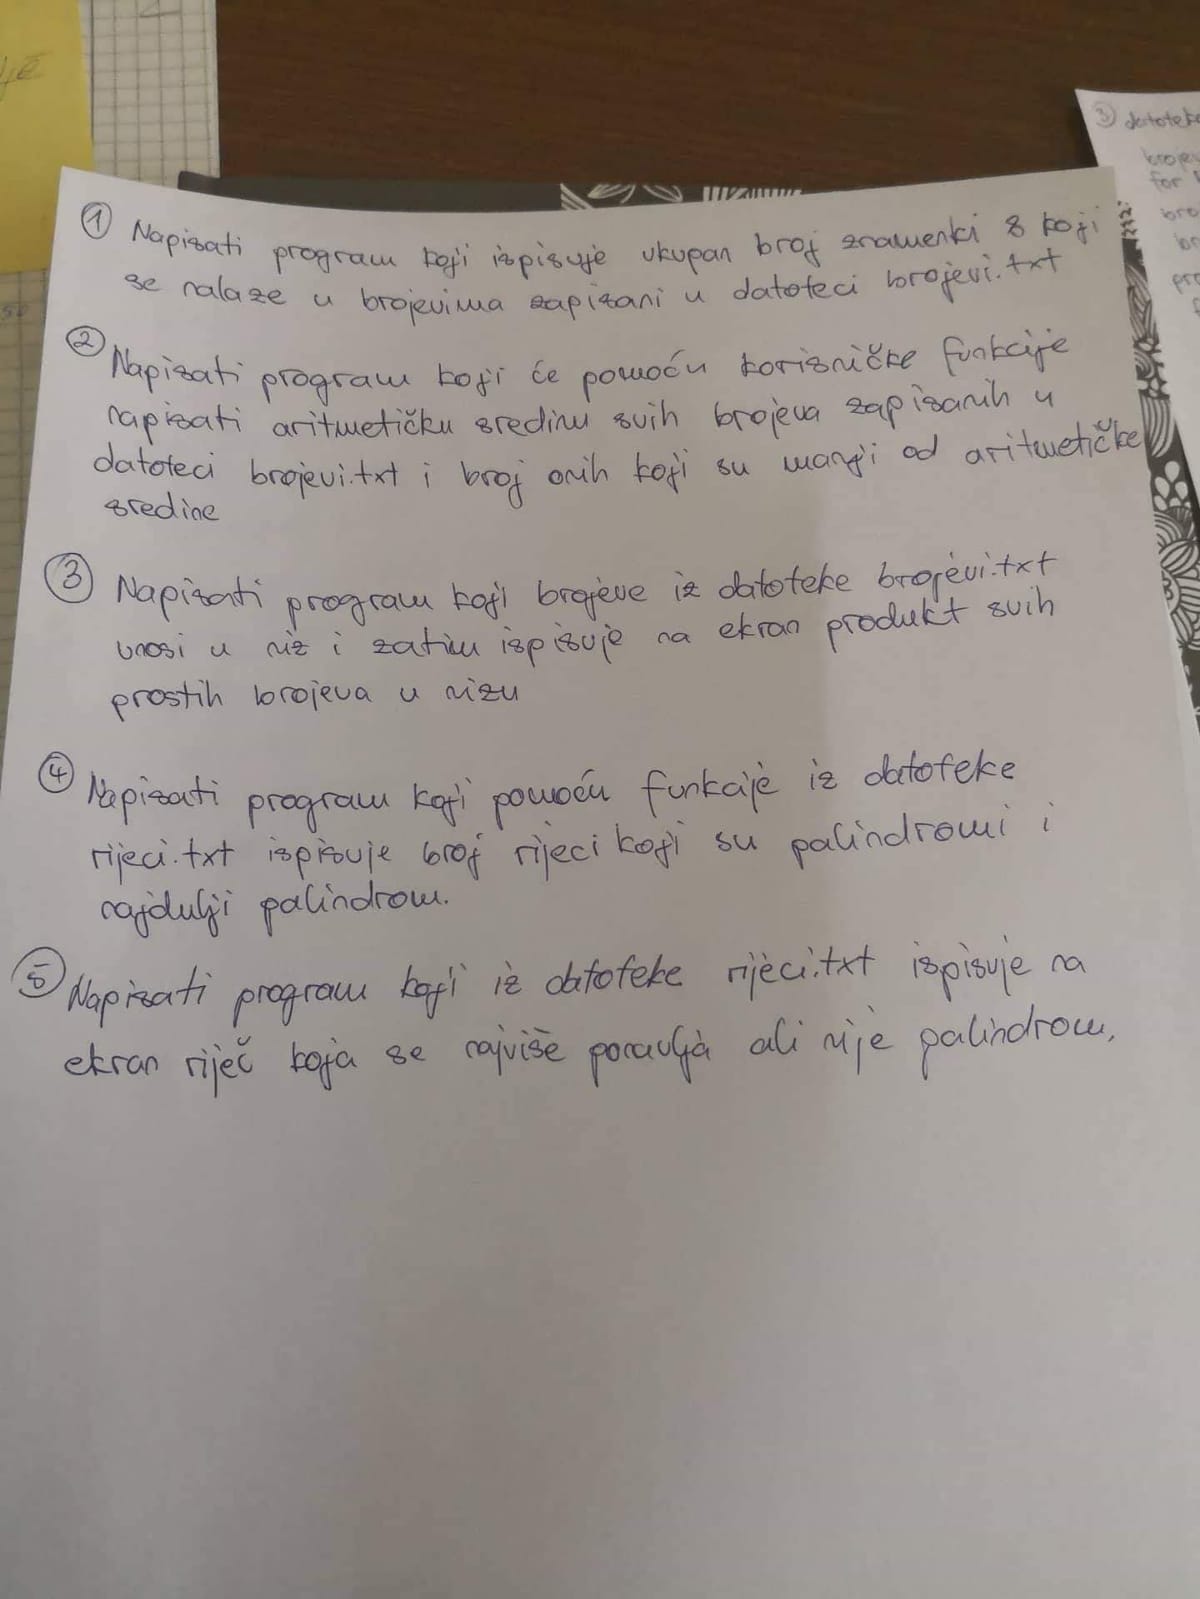 ① Napisati program koji ispisuje ukupan broj znamenki 8 koji
se nalaze u brojevima zapisani u datoteci brojevi.txt
② Napisati program koji će pomoću korisničke funkcije
napisati aritmetičku sredinu svih brojeva zapisanih u
datoteci brojevi.txt i broj onih koji su manji od aritmetičke
sredine
③ Napisati program koji brojeve iz datoteke brojevi.txt
unosi u niz i zatim ispisuje na ekran produkt svih
prostih brojeva u nizu
④ Napisati program koji pomoću funkcije iz datoteke
rijeci.txt ispisuje broj rijeci koji su palindromi i
najdulji palindrom.
⑤ Napisati program koji iz datoteke rijeci.txt ispisuje na
ekran riječ koja se najviše ponavlja ali nije palindrom.
③ datoteke
for